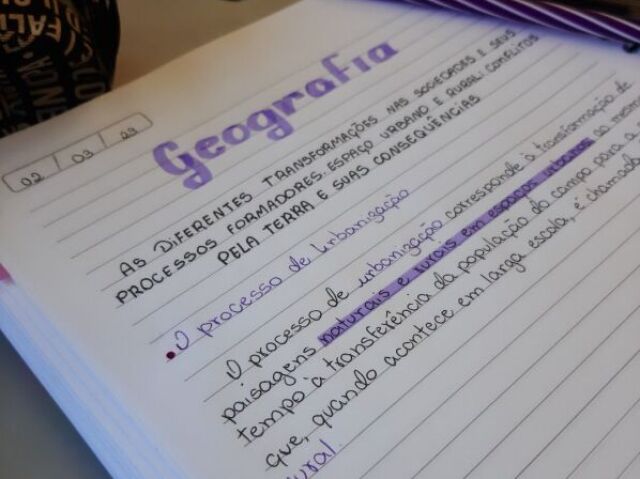 Geografia
02 / 03 / 23
AS DIFERENTES TRANSFORMAÇÕES NAS SOCIEDADES E SEUS
PROCESSOS FORMADORES. ESPAÇO URBANO E RURAL: CONFLITOS
PELA TERRA E SUAS CONSEQUÊNCIAS
• O processo de urbanização
O processo de urbanização corresponde à transformação de
paisagens naturais e rurais em espaços urbanos ao mesmo
tempo à transferência da população do campo para a
que, quando acontece em larga escala, é chamada
rural.